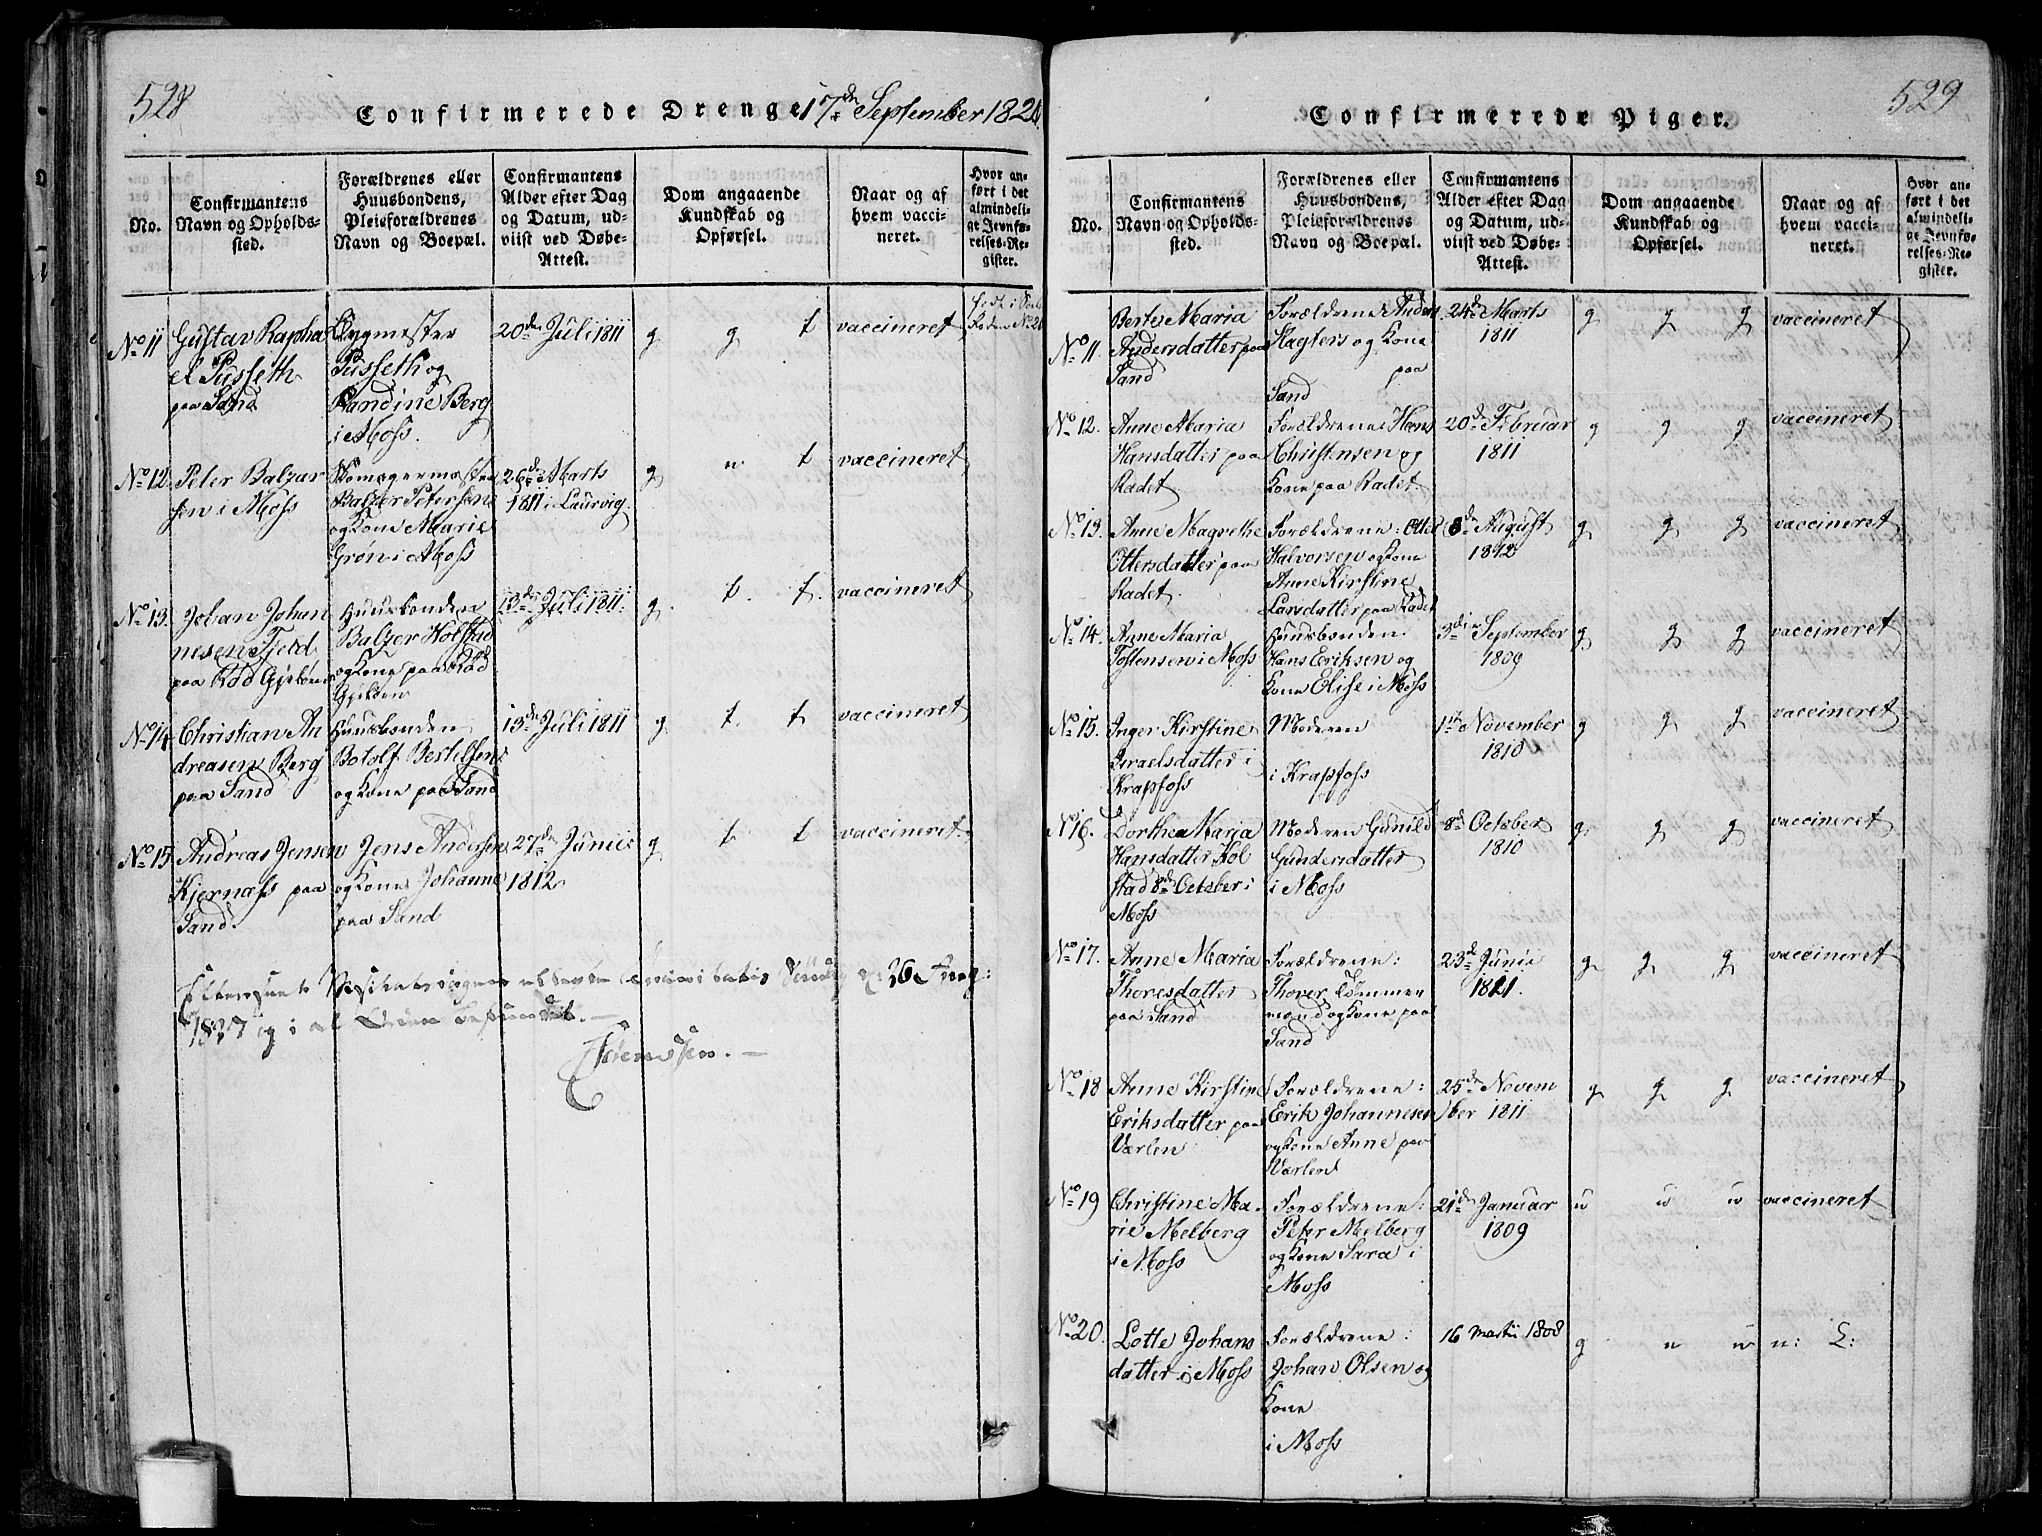 528
Confirmerede Drenge 17de September 1826.
No.
Confirmantens
Navn og Opholds-
sted.
Forældrenes eller
Huusbondens,
Pleieforældrenes
Navn og Boepæl.
Confirmantens
Alder efter Dag
og Datum, ud-
viist ved Døbe-
Attest.
Dom angaaende
Kundskab og
Opførsel.
Naar og af
hvem vacci-
neret.
Hvor an-
ført i det
almindeli-
ge Jevnfø-
relses-Re-
gister.
No 11
Gustav Rapha
el Pusseth
paa Sand
Bygmester
Pusseth og
Randine Berg
i Moss.
20de Juli 1811
g g t
vaccineret
født i
No 12
Peter Balzar
sen i Moss
Skomagermester
Balzer Petersen
og Kone Marie
Grøn i Moss
26de Marts
1811 i Laurvig.
g t
vaccineret
No 13.
Johan Johan
nesen Fjeld
paa Rød Gjelden
Huusbonden
Balzer Holstad
og Kone paa Rød
Gjelden
13de Juli 1811.
g. t. t.
vaccineret
No 14
Christian An
dreasen Berg
paa Sand
Huusbonden
Botolf Bertelsen
og Kone paa Sand
13de Juli 1811
g. t. t
vaccineret
No 15
Andreas Jensen
Kjernass paa
Sand.
Jens Andersen
og Kone Johanne
paa Sand
27de Junii
1812
g t t
vaccineret.
1827 og i
529
Confirmerede Piger.
No.
Confirmantens
Navn og Opholds-
sted.
Forældrenes eller
Huusbondens,
Pleieforældrenes
Navn og Boepæl.
Confirmantens
Alder efter Dag
og Datum, ud-
viist ved Døbe-
Attest.
Dom angaaende
Kundskab og
Opførsel.
Naar og af
hvem vacci-
neret.
Hvor an-
ført i det
almindeli-
ge Jevnfø-
relses-Re-
gister.
No 11.
Berte Maria
Andersdatter paa
Sand
Forældrene Anders
Slagters og Kone
paa
Sand
24de Marts
1811
g g g
vaccineret
No 12.
Anne Maria
Hansdatter paa
Radet
Forældrene Hans
Christensen og
Kone paa Radet
20de Februar
1811
g g g
vaccineret
No 13.
Anne Magrethe
Ottersdatter paa
Radet
Forældrene: Otter
Halvorsen og Kone
Anne Kirstine
Larsdatter paa Radet
8de August
1812
g g g
vaccineret
No 14.
Anne Maria
Tostensen i Moss
Huusbonden
Hans Eriksen og
Kone Elise i Moss
3die September
1809
g g g
vaccineret
No 15.
Inger Kirstine
Israelsdatter i
Krapfoss
Moderen
i Krapfoss
1te November
1810
g g g
vaccineret
No 16.
Dorthea Maria
Hansdatter Hol
stad 8de October i
Moss
Moderen Gunild
Gundersdatter
i Moss
8de October
1810
g g g
vaccineret
No 17.
Anne Maria
Thoresdatter
paa Sand
Forældrene:
Thover Tømmer
mand og Kone paa
Sand
23de Junii
1811.
g g g
vaccineret
No 18
Anne Kirstine
Eriksdatter paa
Værlen
Forældrene:
Erik Johannesen
og Kone Anne paa
Værlen
25de Novem
ber 1811
g g g
vaccineret
No 19
Christine Ma-
rie Melberg
i Moss
Forældrene:
Peter Melberg
og Kone Sara i
Moss
21de Januar
1809
u u u
vaccineret
No 20.
Lotte Johans
datter i Moss
Forældrene:
Johan Olsen og
Kone
i Moss
16 Martii 1808
g u u